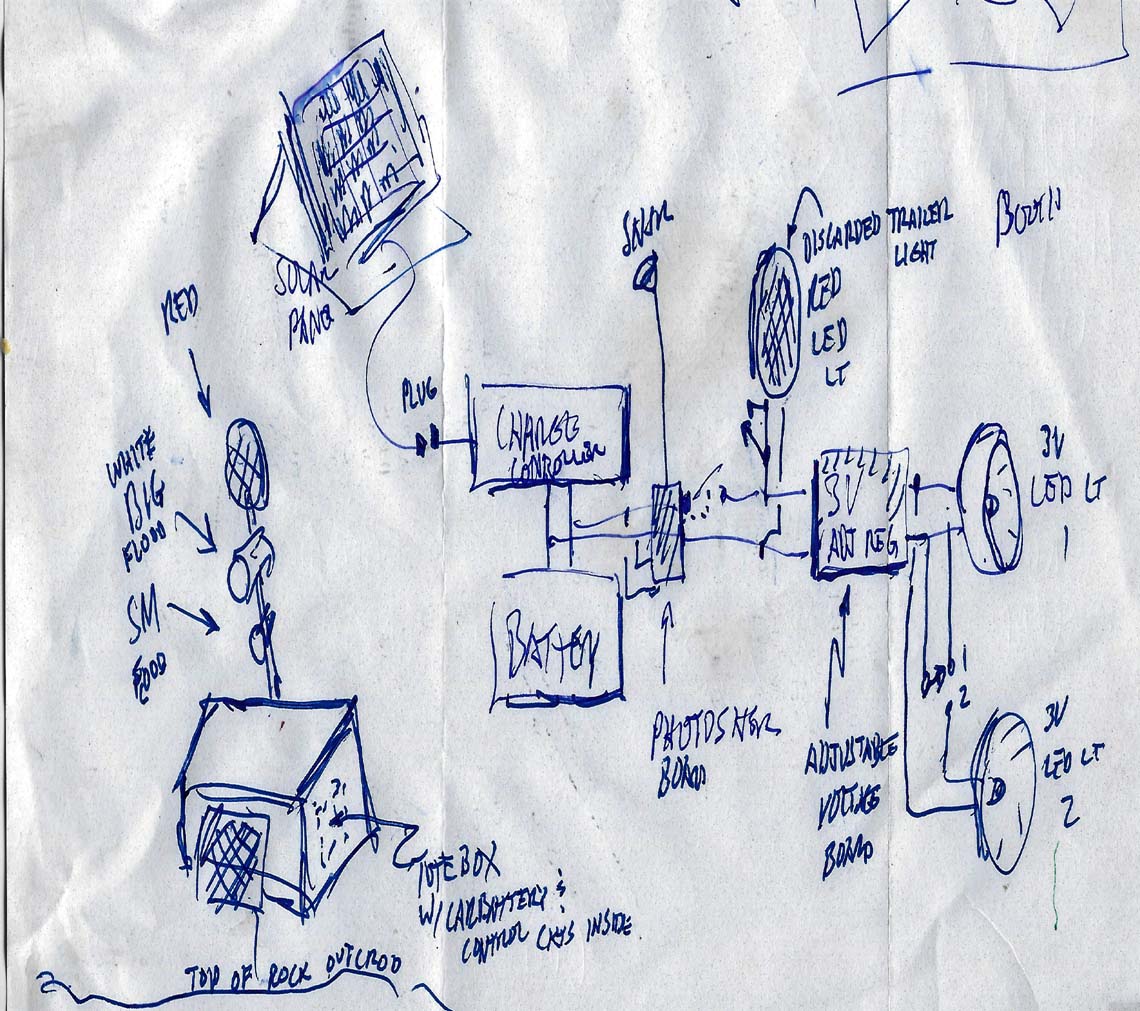 SOLAR
PANEL
RED
PLUG
CHARGE
CONTROLLER
DISCARDED TRAILER
LIGHT
RED
LED
LT
WHITE
BIG
FLOOD
SM
FLOOD
BATTERY
3V
ADJ REG
3V
LED LT
1
1
2
3V
LED LT
2
BOARD
ADJUSTABLE
VOLTAGE
BOARD
TOTE BOX
W/ CAR BATTERY &
CONTROL CKTS INSIDE
TOP OF ROCK OUTCROP